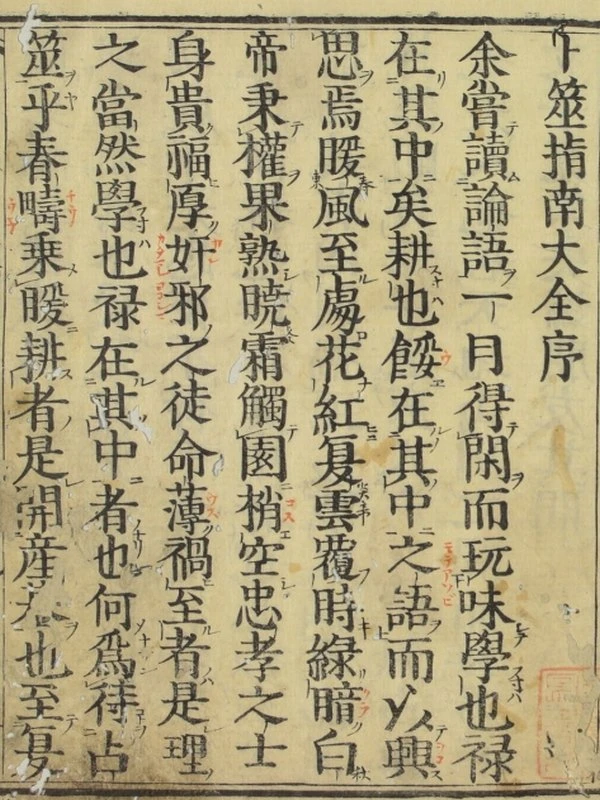 卜筮指南大全序
余嘗讀論語一日得閑而玩味學也禄
在其中矣耕也餒在其中之語而以興
思焉暖風至處花紅夏雲覆時綠暗白
帝秉權果熟曉霜觸園梢空忠孝之士
身貴福厚奸邪之徒命薄禍至者是理
之當然學也禄在其中者也何爲待占
筮乎春疇乗暖耕者是開産也至夏